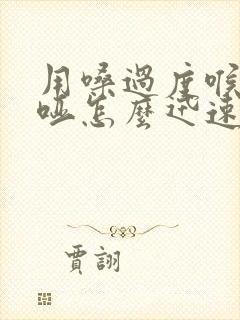 用嗓過度喉
啞怎麼迅速
賈詡